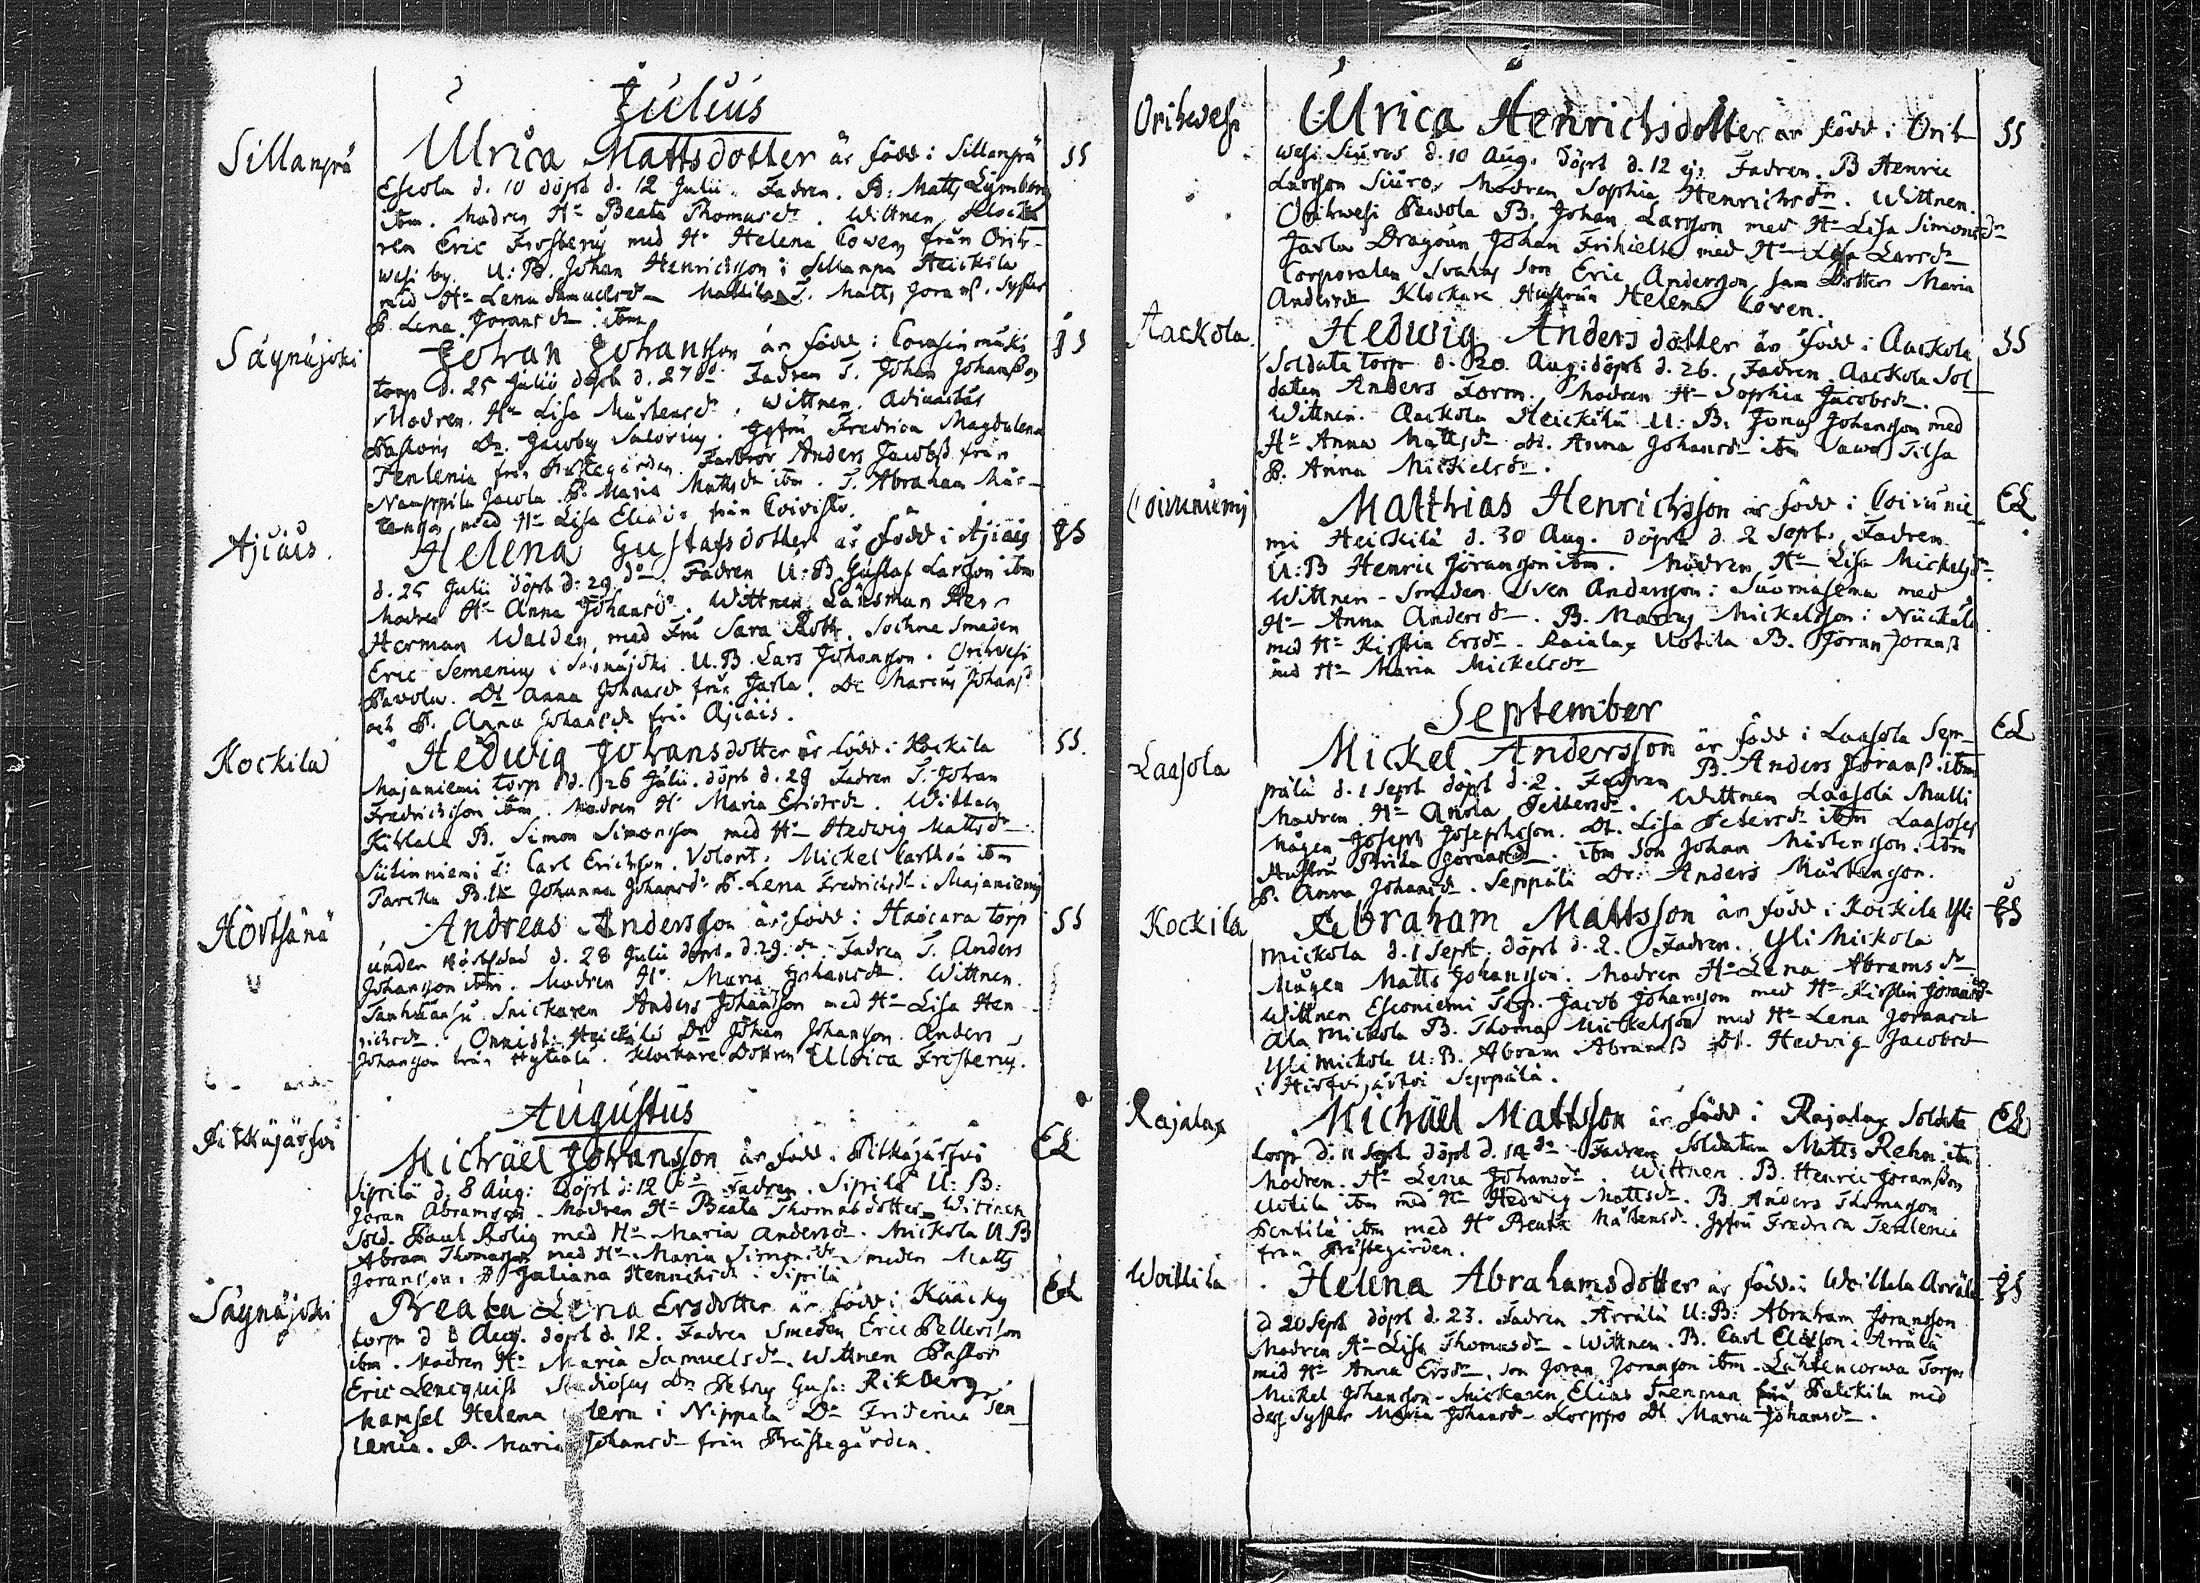 Julius
Sillanpä
Ulrica Mattsdotter är född i Sillanpä SS
Escola d. 10 döpt d. 12 Julii. Fadren. B: Matts
ibm. Modren Hu Beata Thomasdr. Wittnen Klocka
ren Eric Frosterus med Hu Helena Coven från Orih-
wesi by. U: B. Johan Henricsson i Sillanpä Heickilä
med Hu Lena Samuelsdr T. Matts Joranss. Syster
P. Lena Joransdr ibm
Säynäjoki
Johan Johansson är född i JS
torp d. 25 Julii döpt d. 27 do Fadren T. Johan Johansson
Modren. Hu Lisa Mårtensdr. Wittnen. Adjunctus
Pastoris Dn. Jacobus Salovius. Jgfru Fredrica Magdalena
Tenlenia från Prästegården. Farbror Anders Jacobss från
Jacola. P. Maria Mattsdr ibm. T. Abraham Mår-
tensson med Hu Lisa från Coivisto.
Ajiäis.
Helena Gustafsdotter är född i Ajiäis JS
d. 25 Julii döpt d. 29 do. Fadren U: B Gustaf Larsson ibm
Modren Hu Anna Johansdr. Wittnen Länsman Herr
Herman Walden med Fru Sara Roth. Sochne Smeden
Eric Semenius i Säynäjoki. U. B. Lars Johansson. Orihvesi
Pavola. Dt Anna Johansdr från Jarla. Dr Marcus Johanss
och P. Anna Johansdr från Ajiäis.
Kockila
Hedwig Johansdotter är född i Kockila SS.
Majaniemi torp d. 26 Julii. döpt d. 29 Fadren T. Johan
Fredricsson ibm. Modren Hu Maria Ericsdr. Wittnen
B. Simon Simonsson med Hu Hedwig Mattsdr
Siitinniemi T: Carl Ericsson. Volont: Mickel ibm
B. Johanna Johansdr P. Lena Fredrichsdr i Majaniemi
Hörtsänä
Andreas Andersson är född i torp SS
under d. 28 Julii döpt d. 29. do Fadren T. Anders
Johansson ibm. Modren Hu Maria Johansdr. Wittnen.
Snickaren Anders Johansson med Hu Lisa Hen-
richsdr. Heickilä Dr Johan Johansson. Anders
Johansson från Hytiälä. Klockare Dottren Ulrica Frosterus.
Augustus
Pitkäjärfvi
Michäel Johansson är född i Pitkäjärfvi EL
Sipilä d. 8 Aug: döpt d: 12 do Fadren. Sipilä U: B:
Joran Abramsson. Modren Hu Beata Thomasdotter. Wittnen
Sold. Paul Rolig med Hu Maria Andersdr. Mickola U. B
Abram Thomasson med Hu Maria Simonsdr Smeden Matts
Joransson. P Juliana Henrichsdr i Sipilä
Säynäjoki
Beata Lena Ersdotter är född i EL
torp d 8 Aug. döpt d. 12. Fadren Smeden Eric Pettersson
ibm. Modren Hu Maria Samuelsdr. Wittnen Pastor
Eric Lencquist Studiosus Dn Petrus Gust: Rikberg
Mamsel Helena i Nippala Dn Friderica Ten-
lenia. P. Maria Johansdr från Prästegården.
Orihwesi
Ulrica Henrichsdotter är född i Orih- SS
wesi Siuros d. 10 Aug. döpt d. 12 ej: Fadren. B Henric
Larsson Siuros Modren Sophia Henrichsdr. Wittnen.
Orihwesi Pawola B. Johan Larsson med Hu Lisa Simonsdr
Jarla Dragoun Johan Frihielt med Hu Lisa Larsdr
Corporalen Svahns Son Eric Andersson Sam Dotter Maria
Andersdr Klockare Hustrun Helena Coven.
Aackola.
Hedwig Andersdotter är född i Aackola SS
Soldate torp d. 20. Aug: döpt d. 26. Fadren. Aackola Sol-
daten Anders Form. Modren Hu Sophia Jacobsdr.
Wittnen. Aackola Heickilä U: B. Jonas Johansson med
Hu Anna Mattsdr Dt. Anna Johansdr ibm
P. Anna Mickelsdr.
Coivuniemi
Matthias Henrichsson är född i Coivunie- EL
mi Heickilä d. 30 Aug. döpt d. 2 Sept. Fadren
U: B Henric Jöransson ibm. Modren Hu Lisa Mickelsdr
Wittnen Smeden Sven Andersson i Suomasema med
Hu Anna Andersdr. B. Marcus Mickelsson i
med Hu Kirstin Ersdr. Raialax Uotila B. Joran Joranss
med Hu Maria Mickelsdr
September
Laasola
Mickel Andersson är född i Laasola Sep- EL
pälä d. 1 Sept döpt d. 2. Fadren B. Anders Joranss. ibm
Modren. Hu Anna Pettersdr. Wittnen Laasola Mulli
Mågen Joseph Josephsson. Dt. Lisa Petersdr ibm Laasoses
Hustru Brita Joransdr. ibm Son Johan Mårtensson. ibm
P. Anna Johansdr. Seppälä Dr: Anders Mårtensson.
Kockila
Abraham Mattsson är född i Kockila Yli JS
Mickola d. 1 Sept. döpt d. 2. Fadren. Yli Mickola
Mågen Matts Johansson. Modren Hu Lena Abramsdr
Wittnen Esconiemi Torp. Jacob Johansson med Hu Kirstin Joransdr
Ala Mickola B. Thomas Mickelsson med Hu Lena Joransdr
Yli Mickola U: B. Abram Abramss Dt. Hedvig Jacobsdr
i Hirfvijärfvi Seppälä.
Rajalax
Michäel Mattsson är född i Rajalax Soldate EL
torp d. 11 Sept. döpt d. 14 do Fadren Soldaten Matts Rehn ibm
Modren. Hu Lena Johansdr. Wittnen. B. Henric Joransson
Uotila ibm med Hu Hedwig Mattsdr. B. Anders Thomasson
Pentilä ibm med Hu Beata Mårtensdr. Jgfru Fredrica Tenlenia
från Prästegården.
Woitila
Helena Abrahamsdotter är född i Woitila Arrälä JS
d 20 Sept döpt d. 23. Fadren Arrälä U: B: Abraham Joransson
Modren Hu Lisa Thomasdr. Wittnen. B. Carl Eliasson i Arrälä
med Hu Anna Ersdr. Son Joran Joransson ibm. Lähtencorwa Torp
Mickel Johansson. Snickaren Elias Frenman från Palickila med
des Syster Maria Johansdr. Korppo Dt Maria Johansdr.